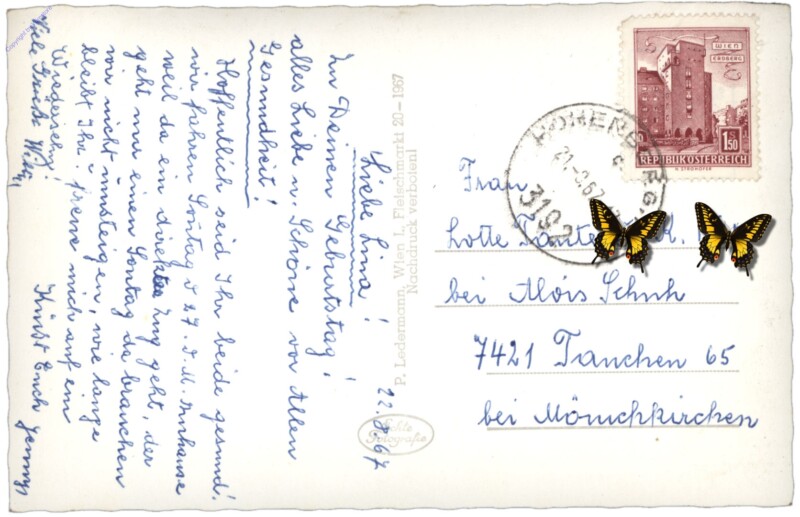 Liebe Lina!
22.8.67
Zu Deinem Geburtstag!
alles Liebe u. Schöne vor Allen
Gesundheit!
Hoffentlich seid Ihr beide gesund!
wir fahren Sontag d 27. d. M. nachhause
weil da ein direkter Zug geht, der
geht nur einen Sontag da brauchen
wir nicht umsteigen, wie lange
bleibt Ihr, freue mich auf ein
Wiedersehn!
Viele Grüße
Küßt Euch
P. Ledermann, Wien I., Fleischmarkt 20 - 1967
Nachdruck verboten!
Echte
Fotografie
WIEN
ERDBERG
1.50
REPUBLIK ÖSTERREICH
HOHENBERG
3192
Frau
Lotte
bei Alois Schuh
7421 Tauchen 65
bei Mönichkirchen